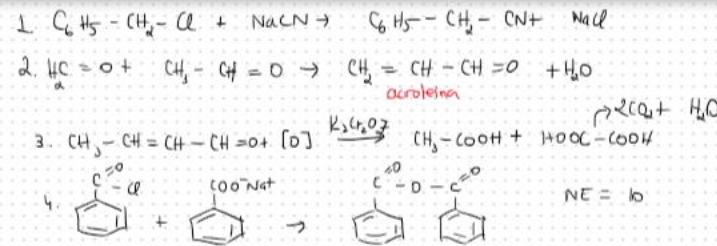 1. C₆H₅ - CH₂ - Cl + NaCN → C₆H₅ - CH₂ - CN + NaCl
2. H₂C = O + CH₃ - CH = O → CH₂ = CH - CH = O + H₂O
acroleina
→ 2CO₂ + H₂O
3. CH₃ - CH = CH - CH = O + [O] K₂Cr₂O₇ → CH₃ - COOH + HOOC - COOH
4. C =O - Cl + COO⁻Na⁺ → C =O - O - C =O NE = 10